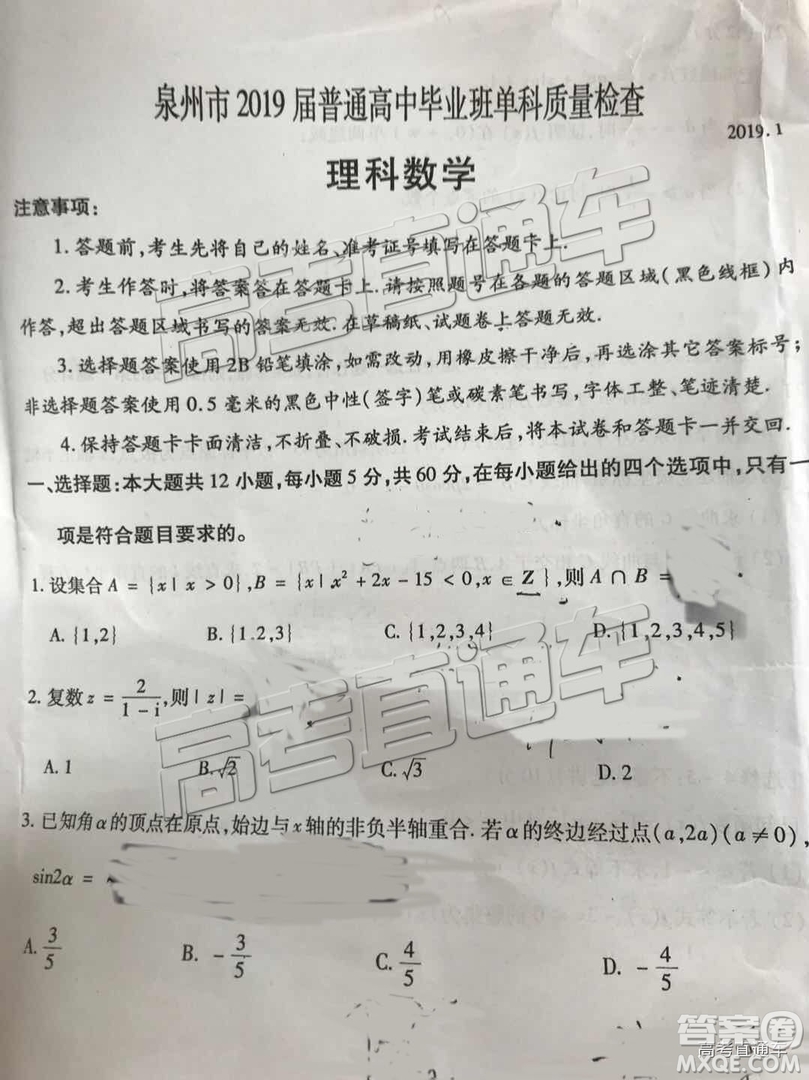 泉州市2019届普通高中毕业班单科质量检查
2019.1
理科数学
注意事项：
1.答题前,考生先将自己的姓名、准考证号填写在答题卡上.
2.考生作答时,将答案答在答题卡上.请按照题号在各题的答题区域(黑色线框)内
作答,超出答题区域书写的答案无效.在草稿纸、试题卷上答题无效.
3.选择题答案使用2B铅笔填涂,如需改动,用橡皮擦干净后,再选涂其它答案标号;
非选择题答案使用0.5毫米的黑色中性(签字)笔或碳素笔书写,字体工整、笔迹清楚.
4.保持答题卡卡面清洁,不折叠、不破损.考试结束后,将本试卷和答题卡一并交回.
一、选择题:本大题共12小题,每小题5分,共60分,在每小题给出的四个选项中,只有一
项是符合题目要求的。
1.设集合A={x|x>0},B={x|x²+2x-15<0,x∈Z},则A∩B=
A.{1,2} B.{1.2,3} C.{1,2,3,4} D.{1,2,3,4,5}
2.复数z=2/(1-i),则|z|=
A.1 B.√2 C.√3 D.2
3.已知角α的顶点在原点,始边与x轴的非负半轴重合.若α的终边经过点(a,2a)(a≠0),
sin2α=
A.3/5 B.-3/5 C.4/5 D.-4/5
高考直通车
高考直通车
答案圈
高考直通车
MXQE.COM